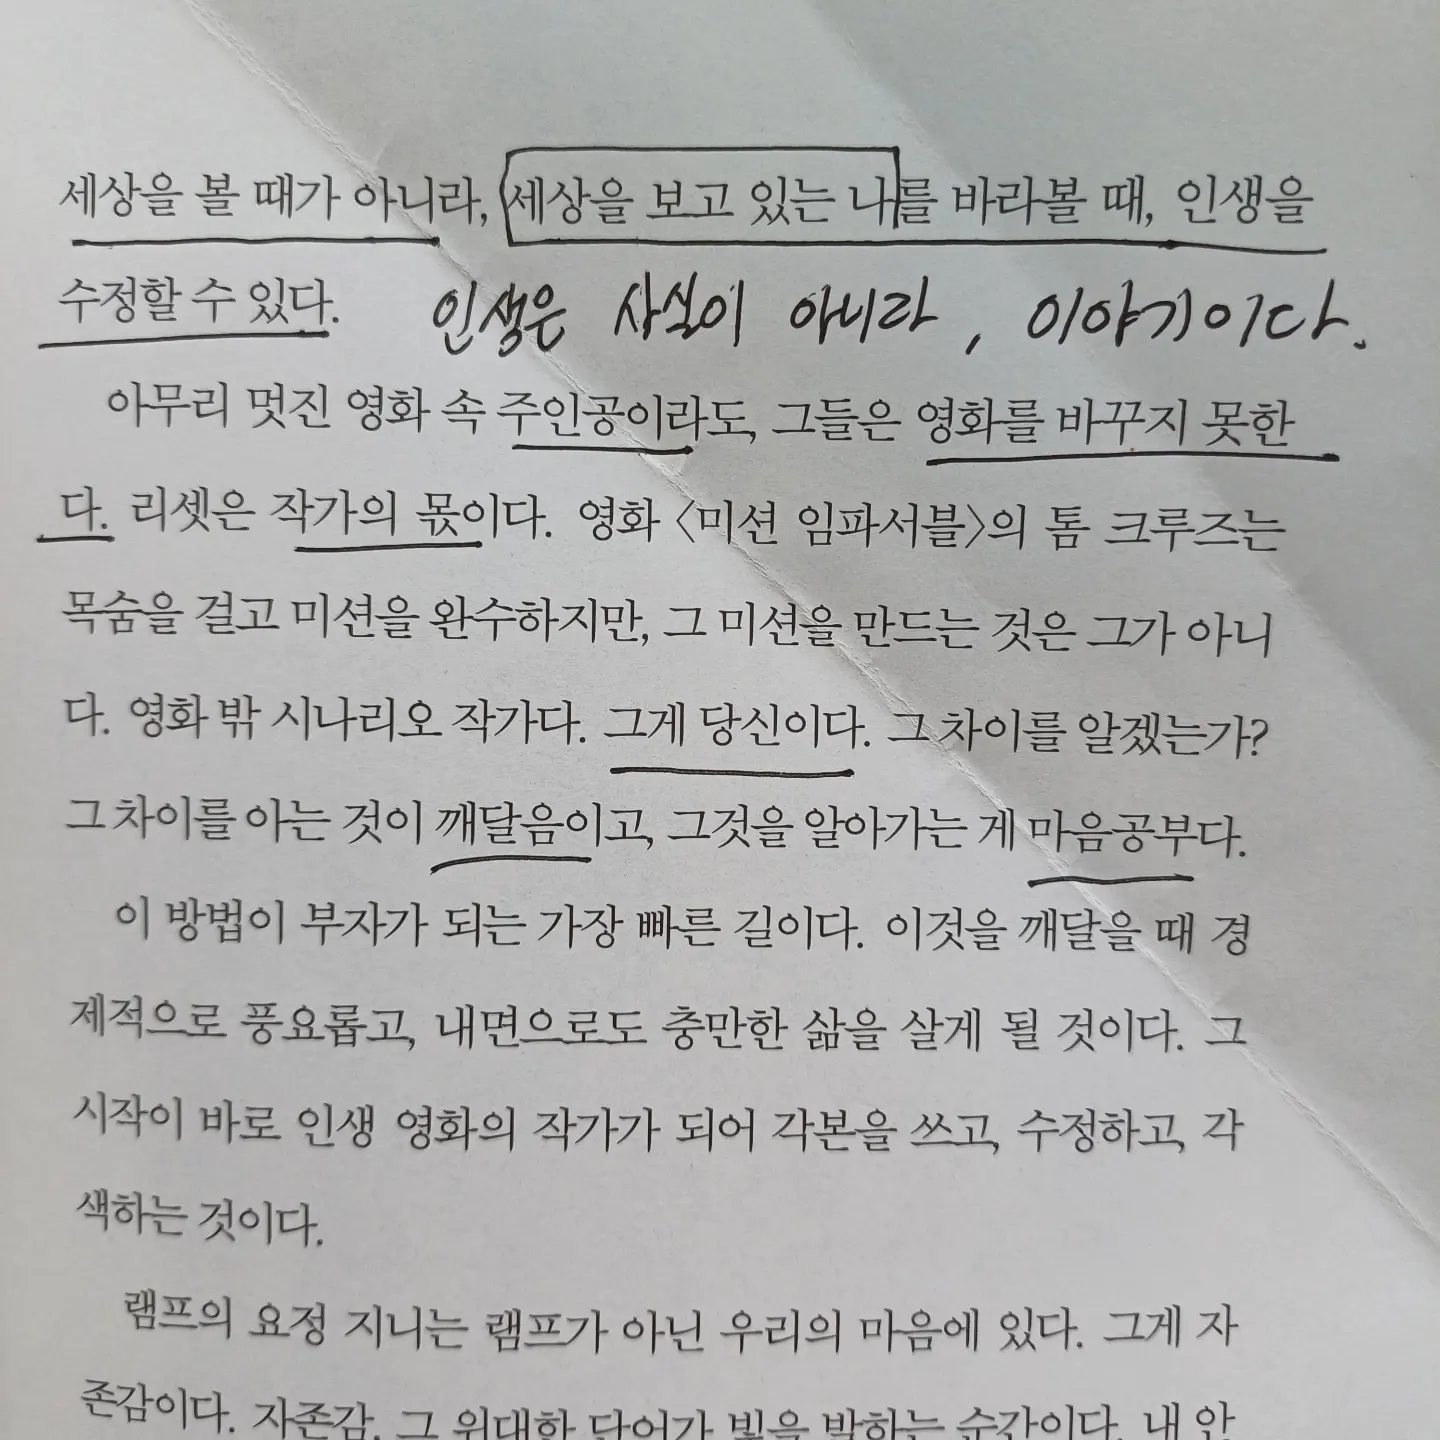 세상을 볼 때가 아니라, 세상을 보고 있는 나를 바라볼 때, 인생을
수정할 수 있다. 인생은 사실이 아니라, 이야기이다.
아무리 멋진 영화 속 주인공이라도, 그들은 영화를 바꾸지 못한
다. 리셋은 작가의 몫이다. 영화 〈미션 임파서블〉의 톰 크루즈는
목숨을 걸고 미션을 완수하지만, 그 미션을 만드는 것은 그가 아니
다. 영화 밖 시나리오 작가다. 그게 당신이다. 그 차이를 알겠는가?
그 차이를 아는 것이 깨달음이고, 그것을 알아가는 게 마음공부다.
이 방법이 부자가 되는 가장 빠른 길이다. 이것을 깨달을 때 경
제적으로 풍요롭고, 내면으로도 충만한 삶을 살게 될 것이다. 그
시작이 바로 인생 영화의 작가가 되어 각본을 쓰고, 수정하고, 각
색하는 것이다.
램프의 요정 지니는 램프가 아닌 우리의 마음에 있다. 그게 자
존감이다. 자존감, 그 위대한 단어가 빛을 발하는 순간이다. 내 안